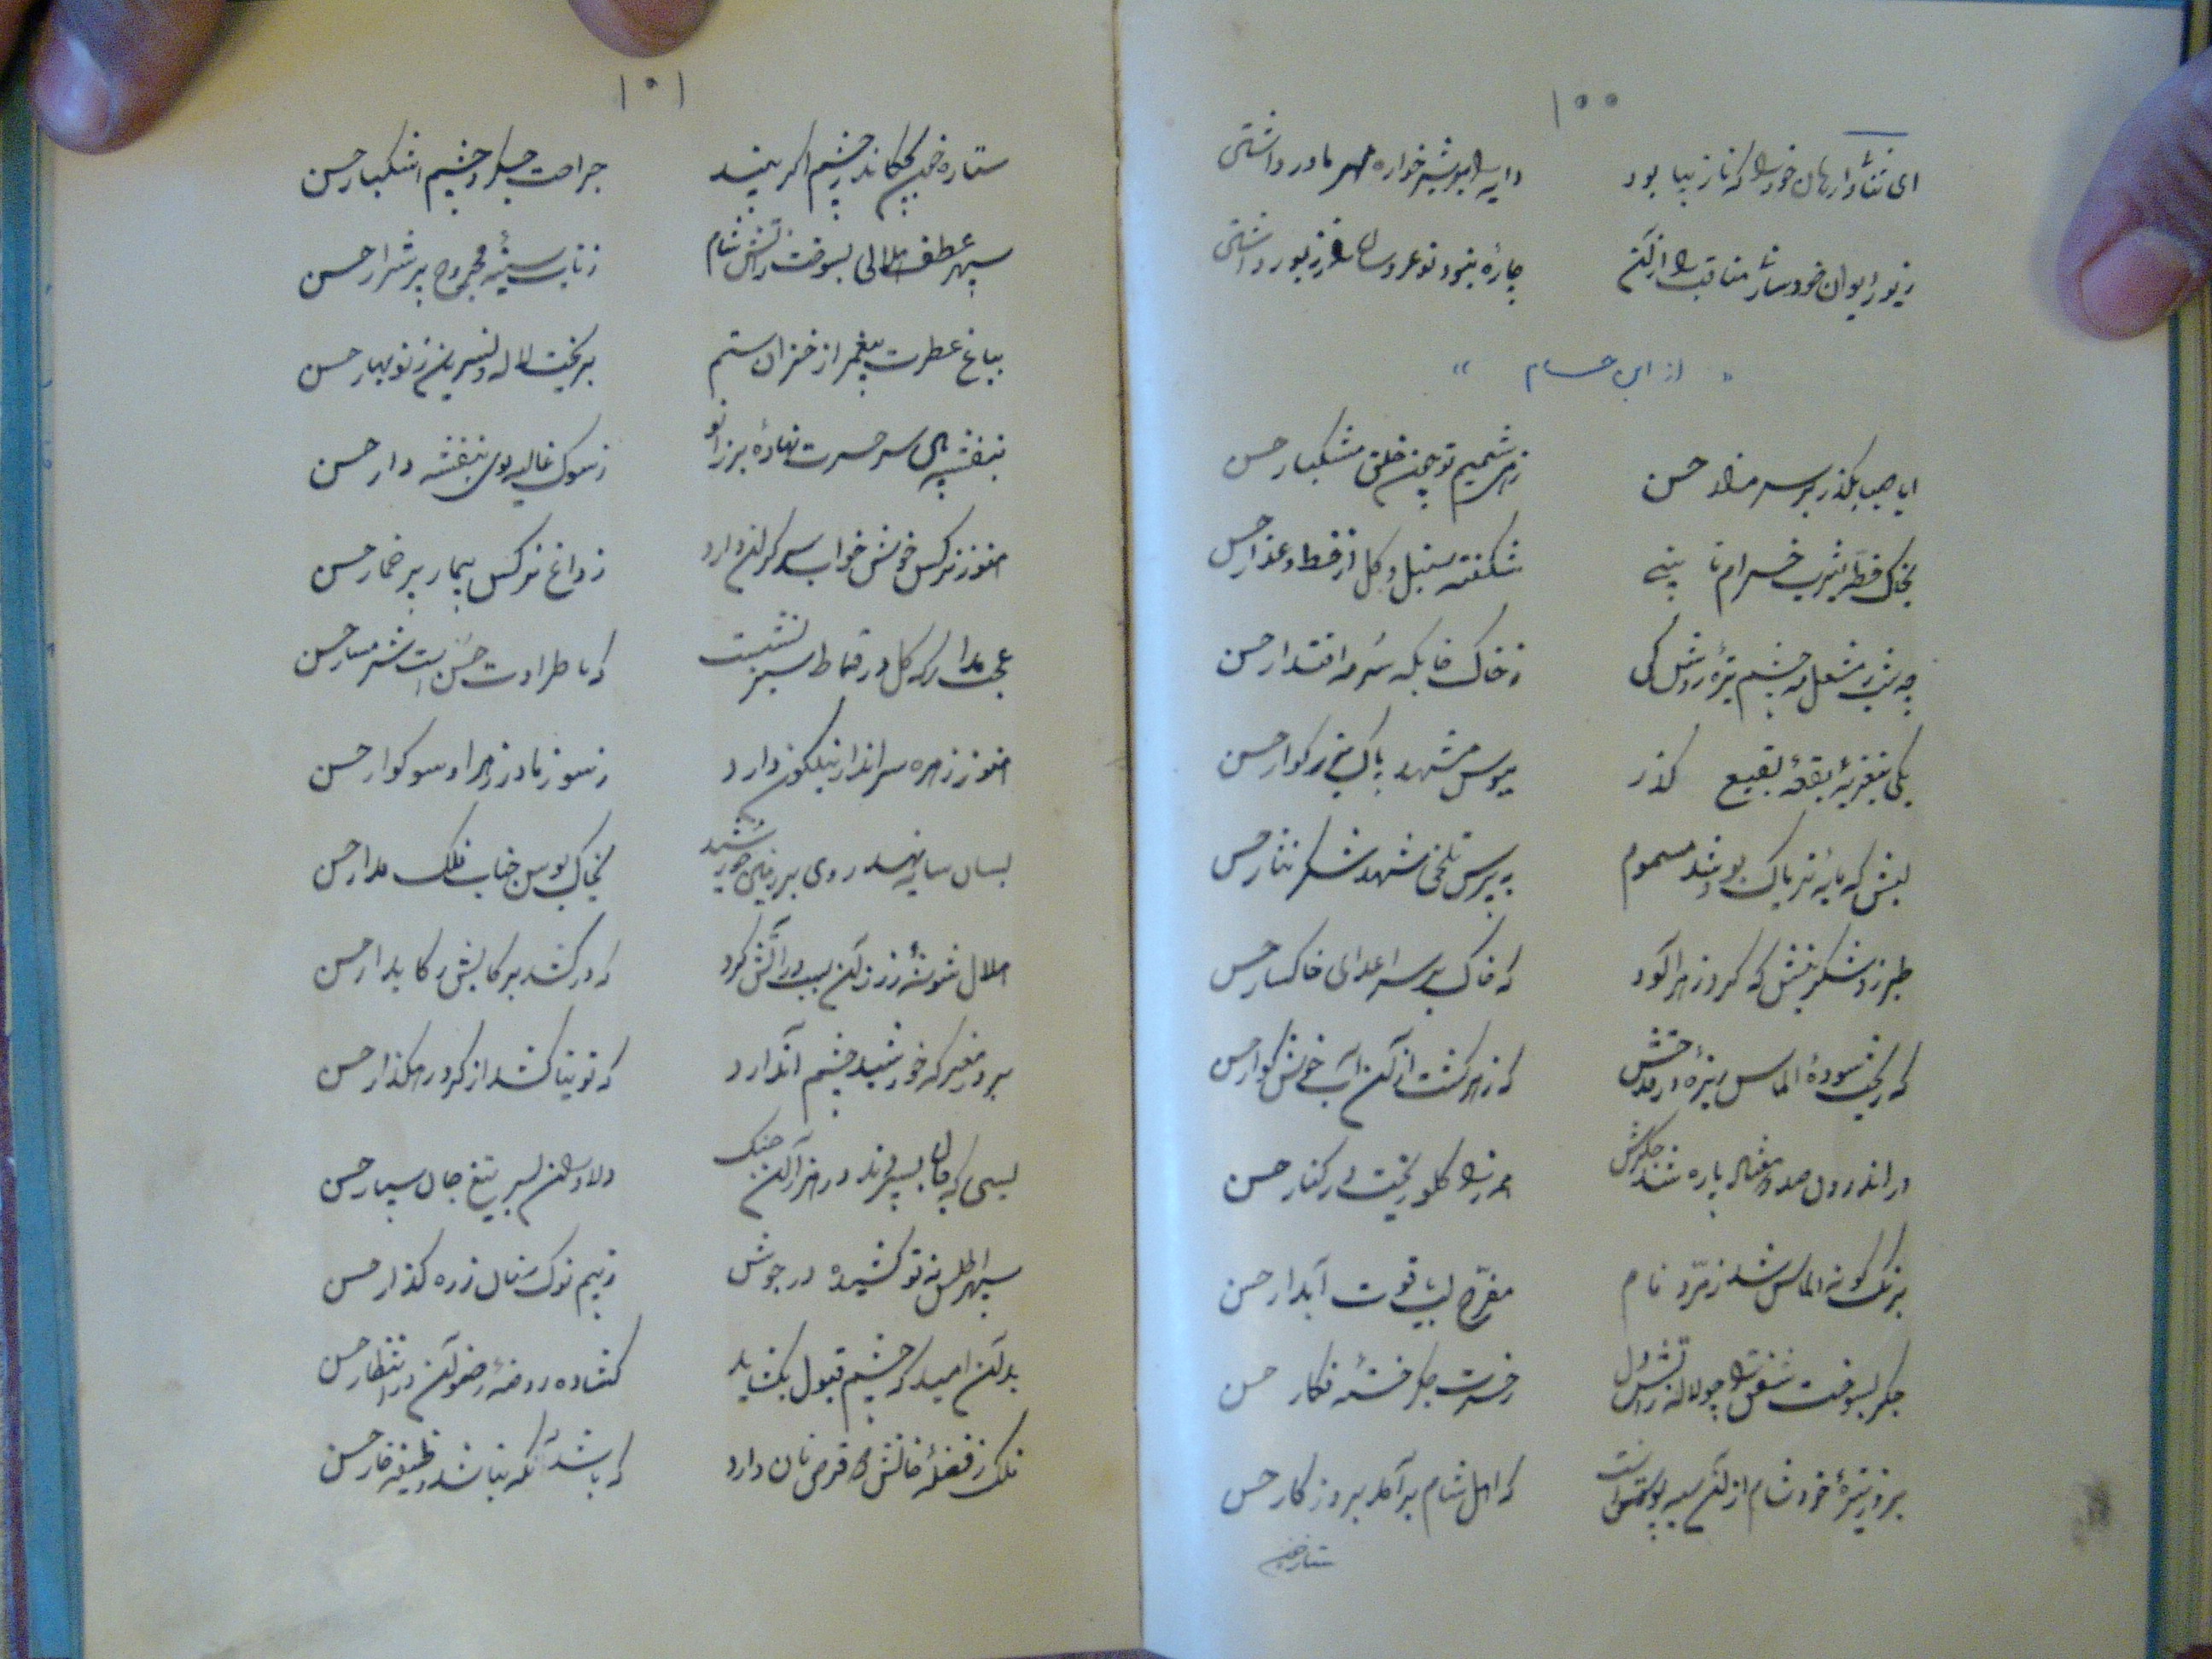 ۱۰۰
ای ثنا دارمان خود را که نازیبا بود دایه را بر شیر خواره مهر مادر داشتن
زیور دیوان خود ساز مناقب را از آنک چاره نبود نو عروسان را ز زیور داشتن
« از ابن حسام »
ایا صبا بگذر بر سر مزار حسن شمیم تو چون خلق مشکبار حسن
بخاک خطه یثرب خرام تا بینی شکفته سنبل و گل از خط و عذار حسن
مشعل مه چشم تیره روشن کن ز خاک خابگه سرمه اقتدار حسن
یکی بتعزیه بقعه بقیع گذر ببوس مشهد پاک بزرگوار حسن
لبش که مایه تریاک بود شد مسموم بپرس تلخی شهد شکر نثار حسن
طبرزد شکرینش که کرد زهرآلود که خاک بر سر اعدای خاکسار حسن
که ریخت سوده الماس ریزه در قدحش که زهر گشت از آن آب خوش گوار حسن
در اندرون صد و هفتاد پاره شد جگرش هم از گلو ریخت در کنار حسن
برنگ گونه الماس شد زمرد فام مفرح لب یاقوت آبدار حسن
جگر بسوخت شفق را چو لاله ز آتش دل ز حسرت جگر خسته فکار حسن
بروز تیره خود شام از آن سیه پوش است که اهل شام برآمد بروزگار حسن
ستاره خون
۱۰۱
ستاره خون بچکاند ز چشم اگر بیند جراحت جگر و چشم اشکبار حسن
سپهر عطف هلالی بسوخت ز آتش شام ز تاب سینه مجروح پر شرار حسن
بباغ عطرت پیغمبر از خزان ستم بریخت لاله و نسرین ز نوبهار حسن
بنفشه بین سر حسرت نهاده بر زانو ز سوک غالیه بوی بنفشه دار حسن
هنوز نرگس خوش خواب سر گران دارد ز داغ نرگس بیمار پر خمار حسن
عجب مدار که گل در قماط سبز نشست که با طراوت حسن است شرمسار حسن
هنوز زهره سرانداز نیلگون دارد ز سوز مادر زهرا و سوگوار حسن
بسان سایه نهد روی بر زمین خورشید بخاک بوس جناب فلک مدار حسن
هلال شوشه زر زان سبب در آتش کرد که در کشد برکابش رکابدار حسن
برو مغبر که خورشید چشم آن دارد که توتیا کشد از گرد رهگذار حسن
بسی که جان بسپرند در هزاران جنگ دلاوران بسر تیغ جان سپار حسن
سپهر اطلس نه تو کشیده در جوشن ز بیم نوک سنان زره گذار حسن
بدان امید که چشم قبول بگشاید گشاده روضه رضوان در انتظار حسن
فلک ز فضله خانش دو قرص نان دارد که باشد آنکه نباشد وظیفه خار حسن